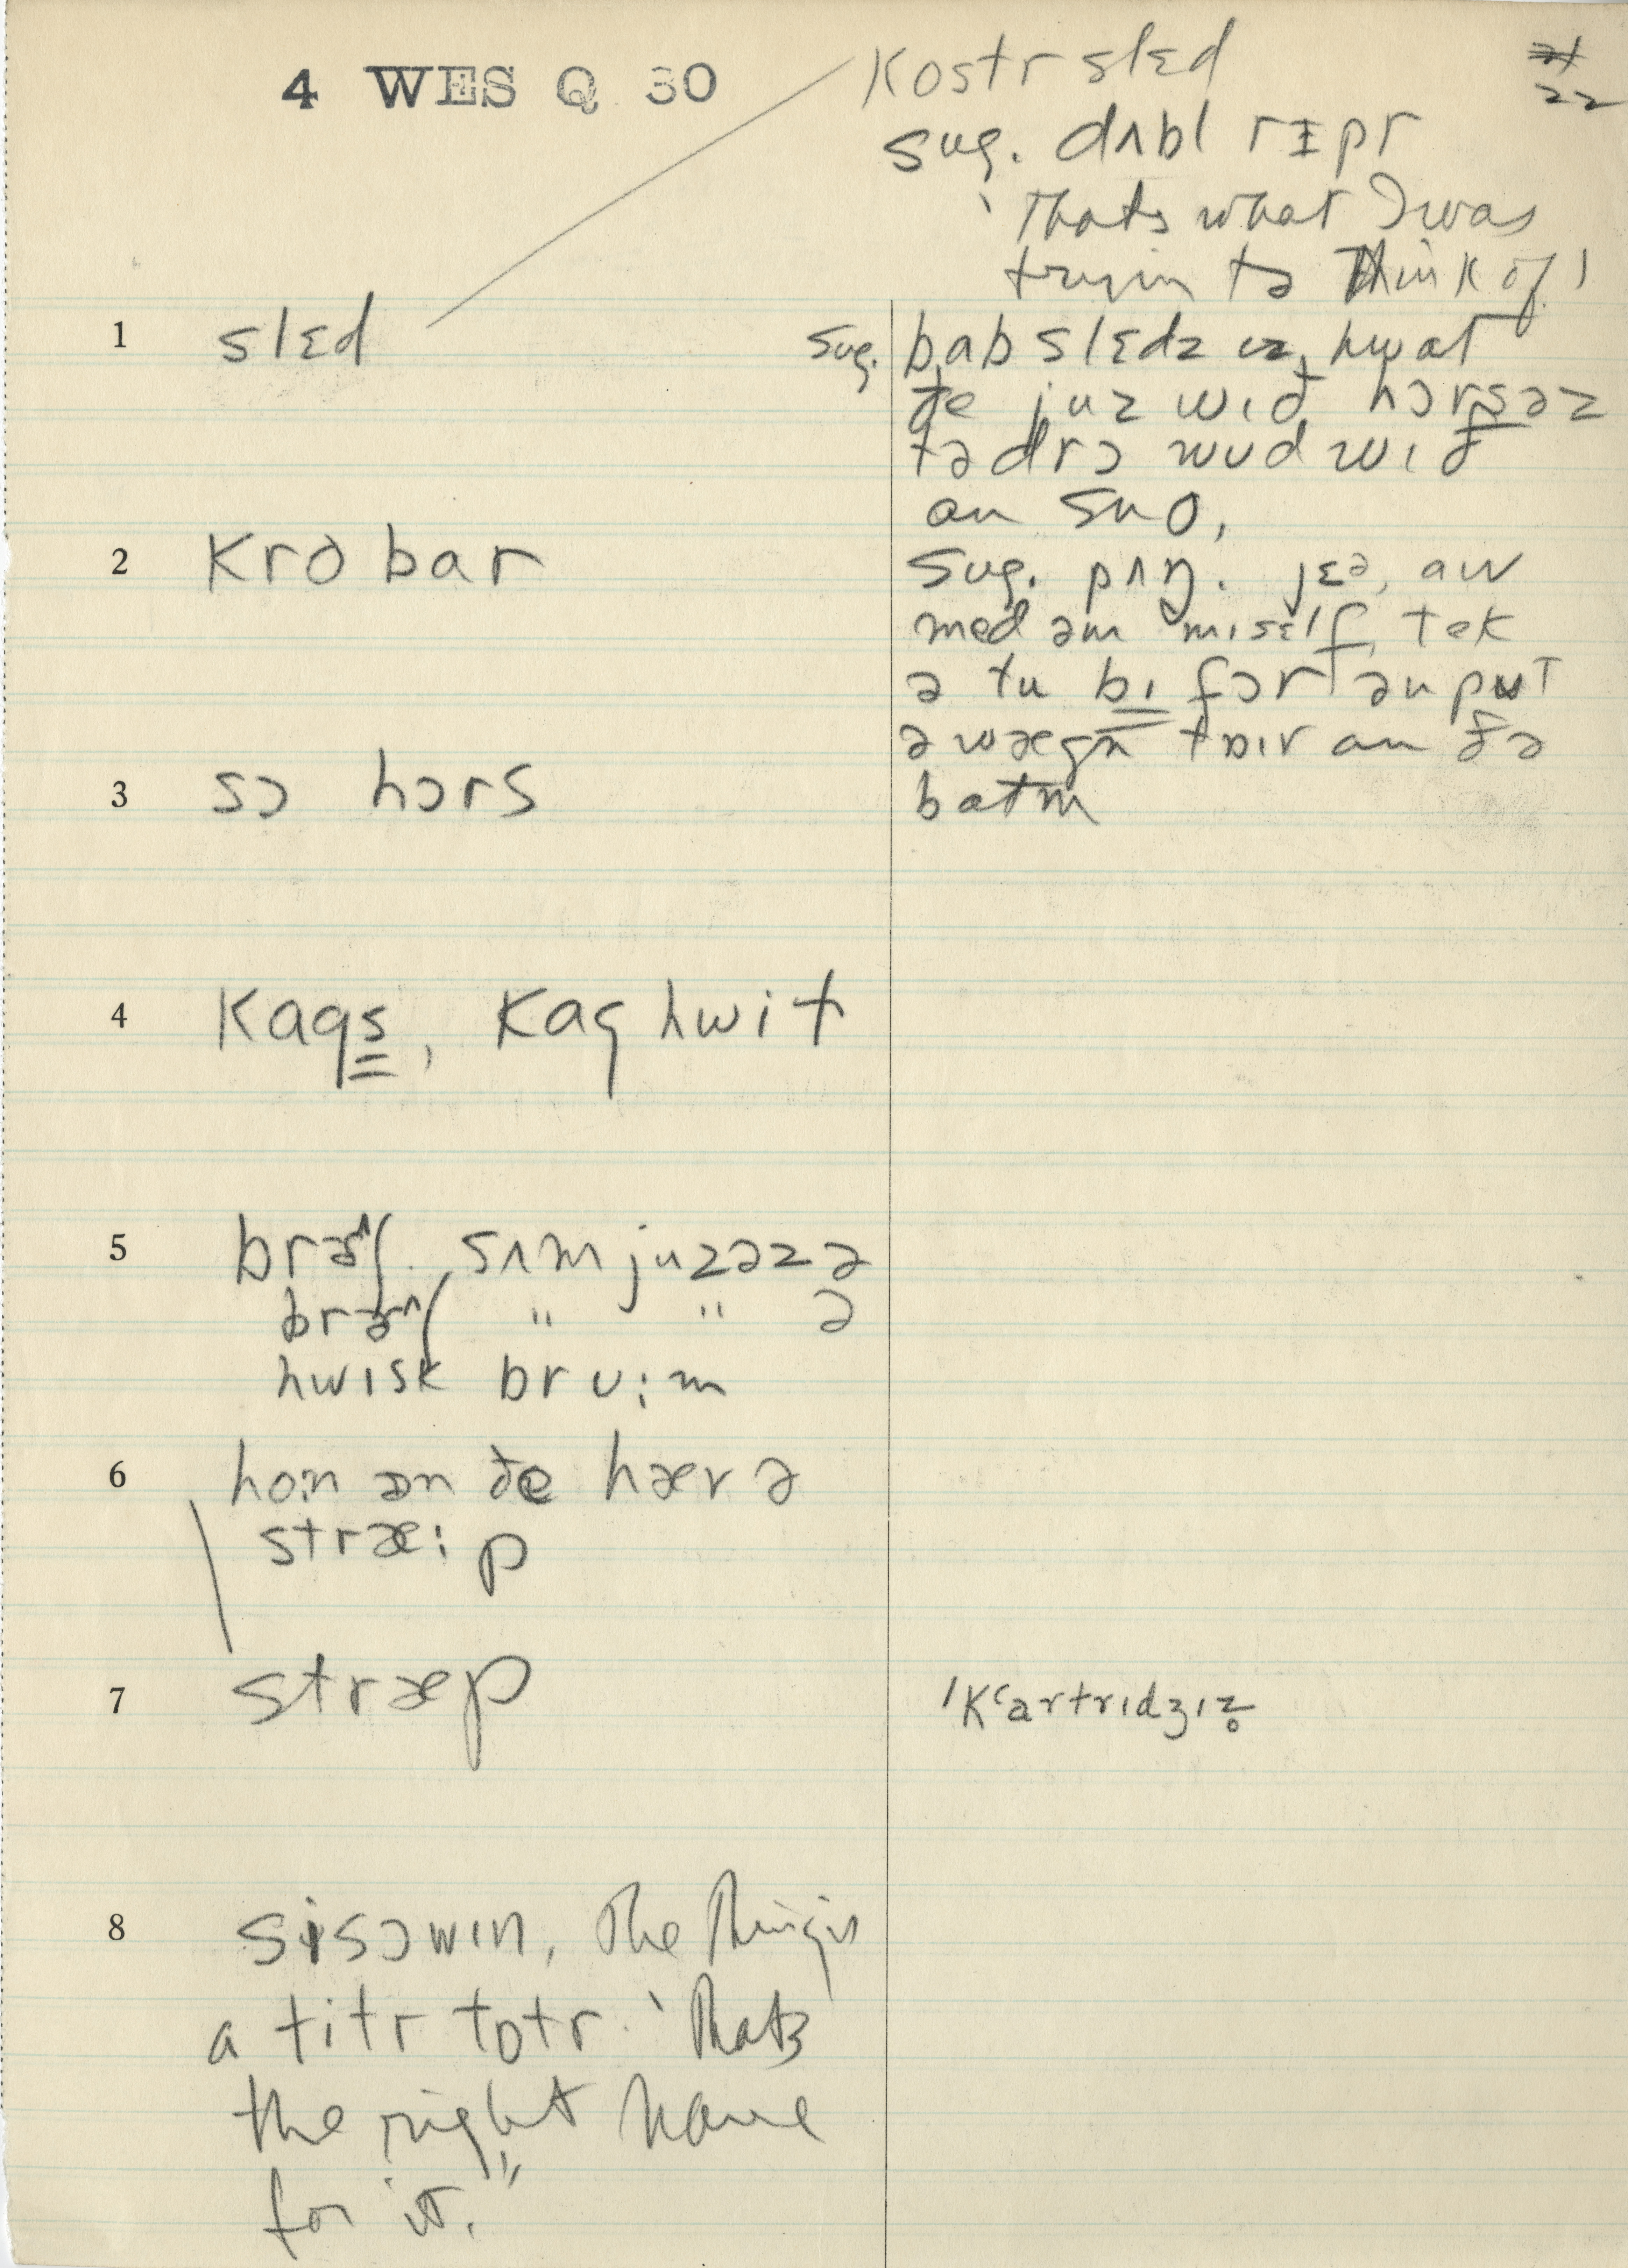 4 WES Q 30
22
kostr slɛd
sug. dʌbl rɪpr
'Thats what I was
tryin tə think of'
1 slɛd
sug. babslɛdz ɪz hwat
ðe juz wɪð hɔrsəz
tə drɔ wud wɪð
an sno,
2 kro bar
sug. pʌŋ. jɛə, aɪv
med əm mɪsɛlf, tek
ə tu bɪ fɔr ən put
ə wægn taɪr an ðə
batm
3 sɔ hɔrs
4 kags, kag hwit
5 brʌʃ. sʌm juzəz ə
brʌʃ " " ə
hwɪsk brʊːm
6 hoːn ən ðe hæv ə
stræːp
7 stræp
ˈkʻartrɪdʒɪz̥
8 sisɔwɪn, The thing is
a titr tɒtr. 'Thats
the right name
for it."